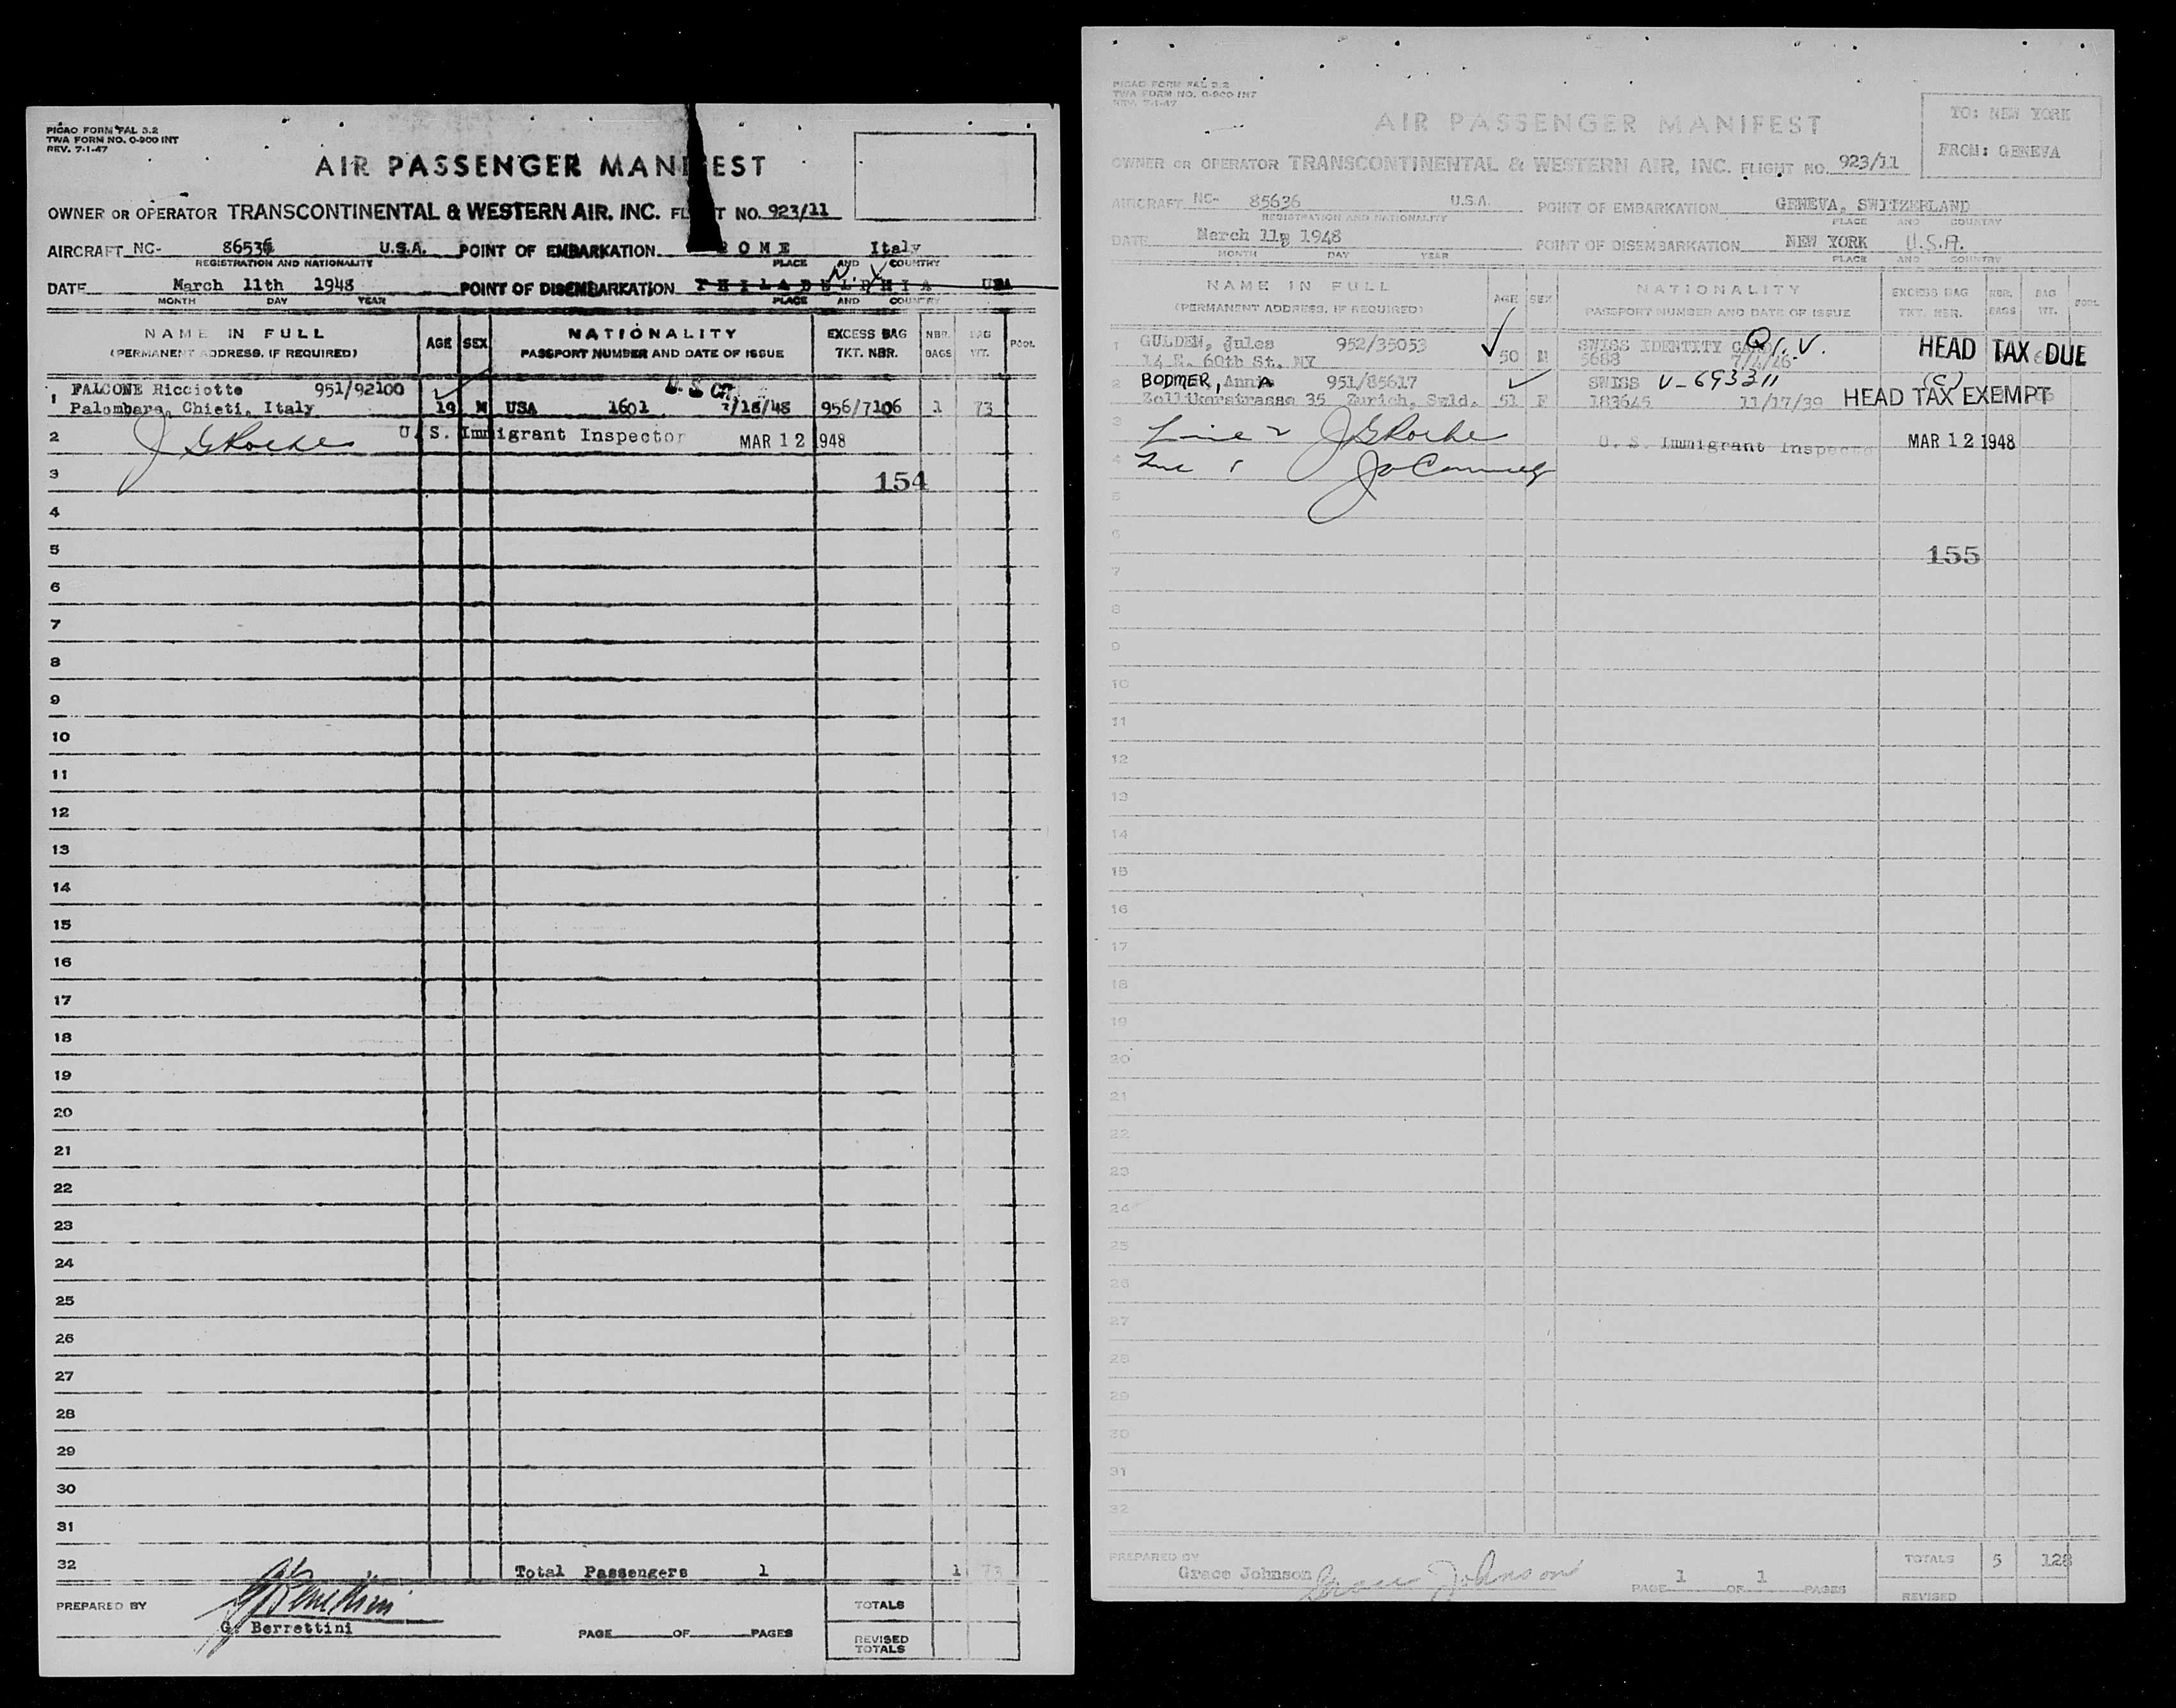 PICAO FORM FAL 3.2
TWA FORM NO. 0-900 INT
REV. 7-1-47
AIR PASSENGER MANI EST
OWNER OR OPERATOR TRANSCONTINENTAL & WESTERN AIR, INC. FL T NO. 923/11
AIRCRAFT NC- 86536 U.S.A. POINT OF EMBARKATION OME Italy
REGISTRATION AND NATIONALITY PLACE AND COUNTRY
N. Y
DATE March 11th 1948 POINT OF DISEMBARKATION PHILADELPHIA USA
MONTH DAY YEAR PLACE AND COUNTRY
NAME IN FULL AGE SEX NATIONALITY EXCESS BAG NBR. BAG POOL
(PERMANENT ADDRESS, IF REQUIRED) PASSPORT NUMBER AND DATE OF ISSUE TKT. NBR. BAGS WT.
1 FALCONE Ricciotte 951/92100 U.S. CZ.
Palombara, Chieti, Italy 19 M USA 1601 /18/48 956/7106 1 73
2 J G Roche U. S. Immigrant Inspector MAR 12 1948
3 154
4
5
6
7
8
9
10
11
12
13
14
15
16
17
18
19
20
21
22
23
24
25
26
27
28
29
30
31
32 Total Passengers 1 1 73
PREPARED BY TOTALS
G. Berrettini PAGE OF PAGES REVISED
TOTALS
PICAO FORM FAL 3.2
TWA FORM NO. 0-900 INT
REV. 7-1-47
TO: NEW YORK
AIR PASSENGER MANIFEST
FROM: GENEVA
OWNER OR OPERATOR TRANSCONTINENTAL & WESTERN AIR, INC. FLIGHT NO. 923/11
AIRCRAFT NC- 85636 U.S.A. POINT OF EMBARKATION GENEVA, SWITZERLAND
REGISTRATION AND NATIONALITY PLACE AND COUNTRY
DATE March 11, 1948 POINT OF DISEMBARKATION NEW YORK U.S.A.
MONTH DAY YEAR PLACE AND COUNTRY
NAME IN FULL AGE SEX NATIONALITY EXCESS BAG NBR. BAG POOL
(PERMANENT ADDRESS, IF REQUIRED) PASSPORT NUMBER AND DATE OF ISSUE TKT. NBR. BAGS WT.
1 GULDEN, Jules 952/35053 SWISS IDENTITY CARD Q.I.V. HEAD TAX DUE
14 E. 60th St. NY 50 M 5688
2 BODMER, Ann A 951/85617 SWISS V-693311 (C)
Zollikerstrasse 35 Zurich, Swld. 51 F 183645 11/17/39 HEAD TAX EXEMPT
3 Line 2 J G Roche U. S. Immigrant Inspecto MAR 12 1948
4 Line 1
5
6
155
7
8
9
10
11
12
13
14
15
16
17
18
19
20
21
22
23
24
25
26
27
28
29
30
31
32
PREPARED BY TOTALS 5 128
Grace Johnson Grace Johnson PAGE 1 OF 1 PAGES
REVISED